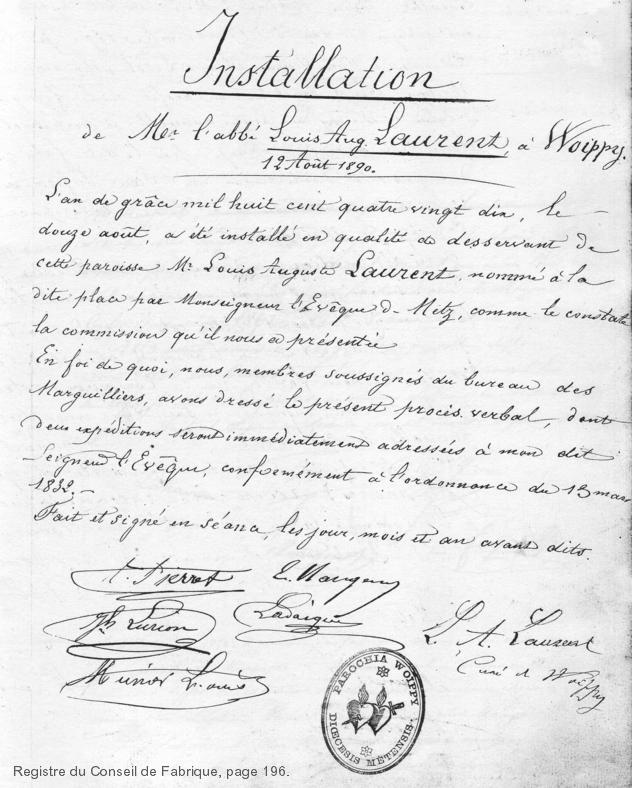 Installation
de Mr. l'abbé Louis Aug. Laurent, à Woippy.
12 Août 1890.
L'an de grâce mil huit cent quatre vingt dix, le –
douze août, a été installé en qualité de desservant de
cette paroisse Mr. Louis Auguste Laurent, nommé à la
dite place par Monseigneur l'Evêque de Metz, comme le constate
la commission qu'il nous a présentée
En foi de quoi, nous, membres soussignés du bureau des
Marguilliers, avons dressé le présent procès verbal, dont
deux expéditions seront immédiatement adressées à mon dit
Seigneur l'Evêque, conformément à l'ordonnance du 13 mars
1832. –
Fait et signé en séance, les jour, mois et an avant dits.
Pierret E. Mangeny
Jh Lurion
L. A. Laurent
Curé de Woippy
Munier Louis
PAROCHIA WOIPPY
DIŒCESIS METENSIS
Registre du Conseil de Fabrique, page 196.